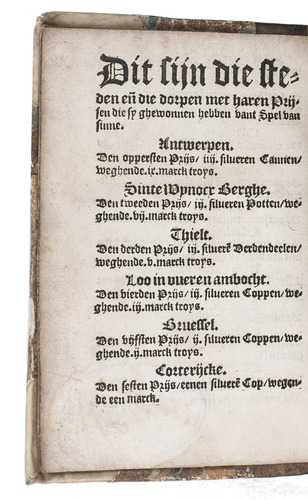 Dit sijn die ste-
den eñ die dorpen met haren Prij-
sen die sy ghewonnen hebben vant Spel van
sinne.
Antwerpen.
Den oppersten Prijs / iiij. silueren Cannen/
weghende. ix. marck troys.
Sinte Wynocx Berghe.
Den tweeden Prijs / iij. silueren Potten/ we-
ghende. vij. marck troys.
Thielt.
Den derden Prijs / iij. siluerē Derdendeelen/
weghende. v. marck troys.
Loo in vueren ambocht.
Den vierden Prijs / iij. silueren Coppen/ we-
ghende. iij. marck troys.
Bruessel.
Den vijfsten Prijs / ij. silueren Coppen/ we-
ghende. ij. marck troys.
Corterijcke.
Den sesten Prijs / eenen siluerē Cop/ wegen-
de een marck.